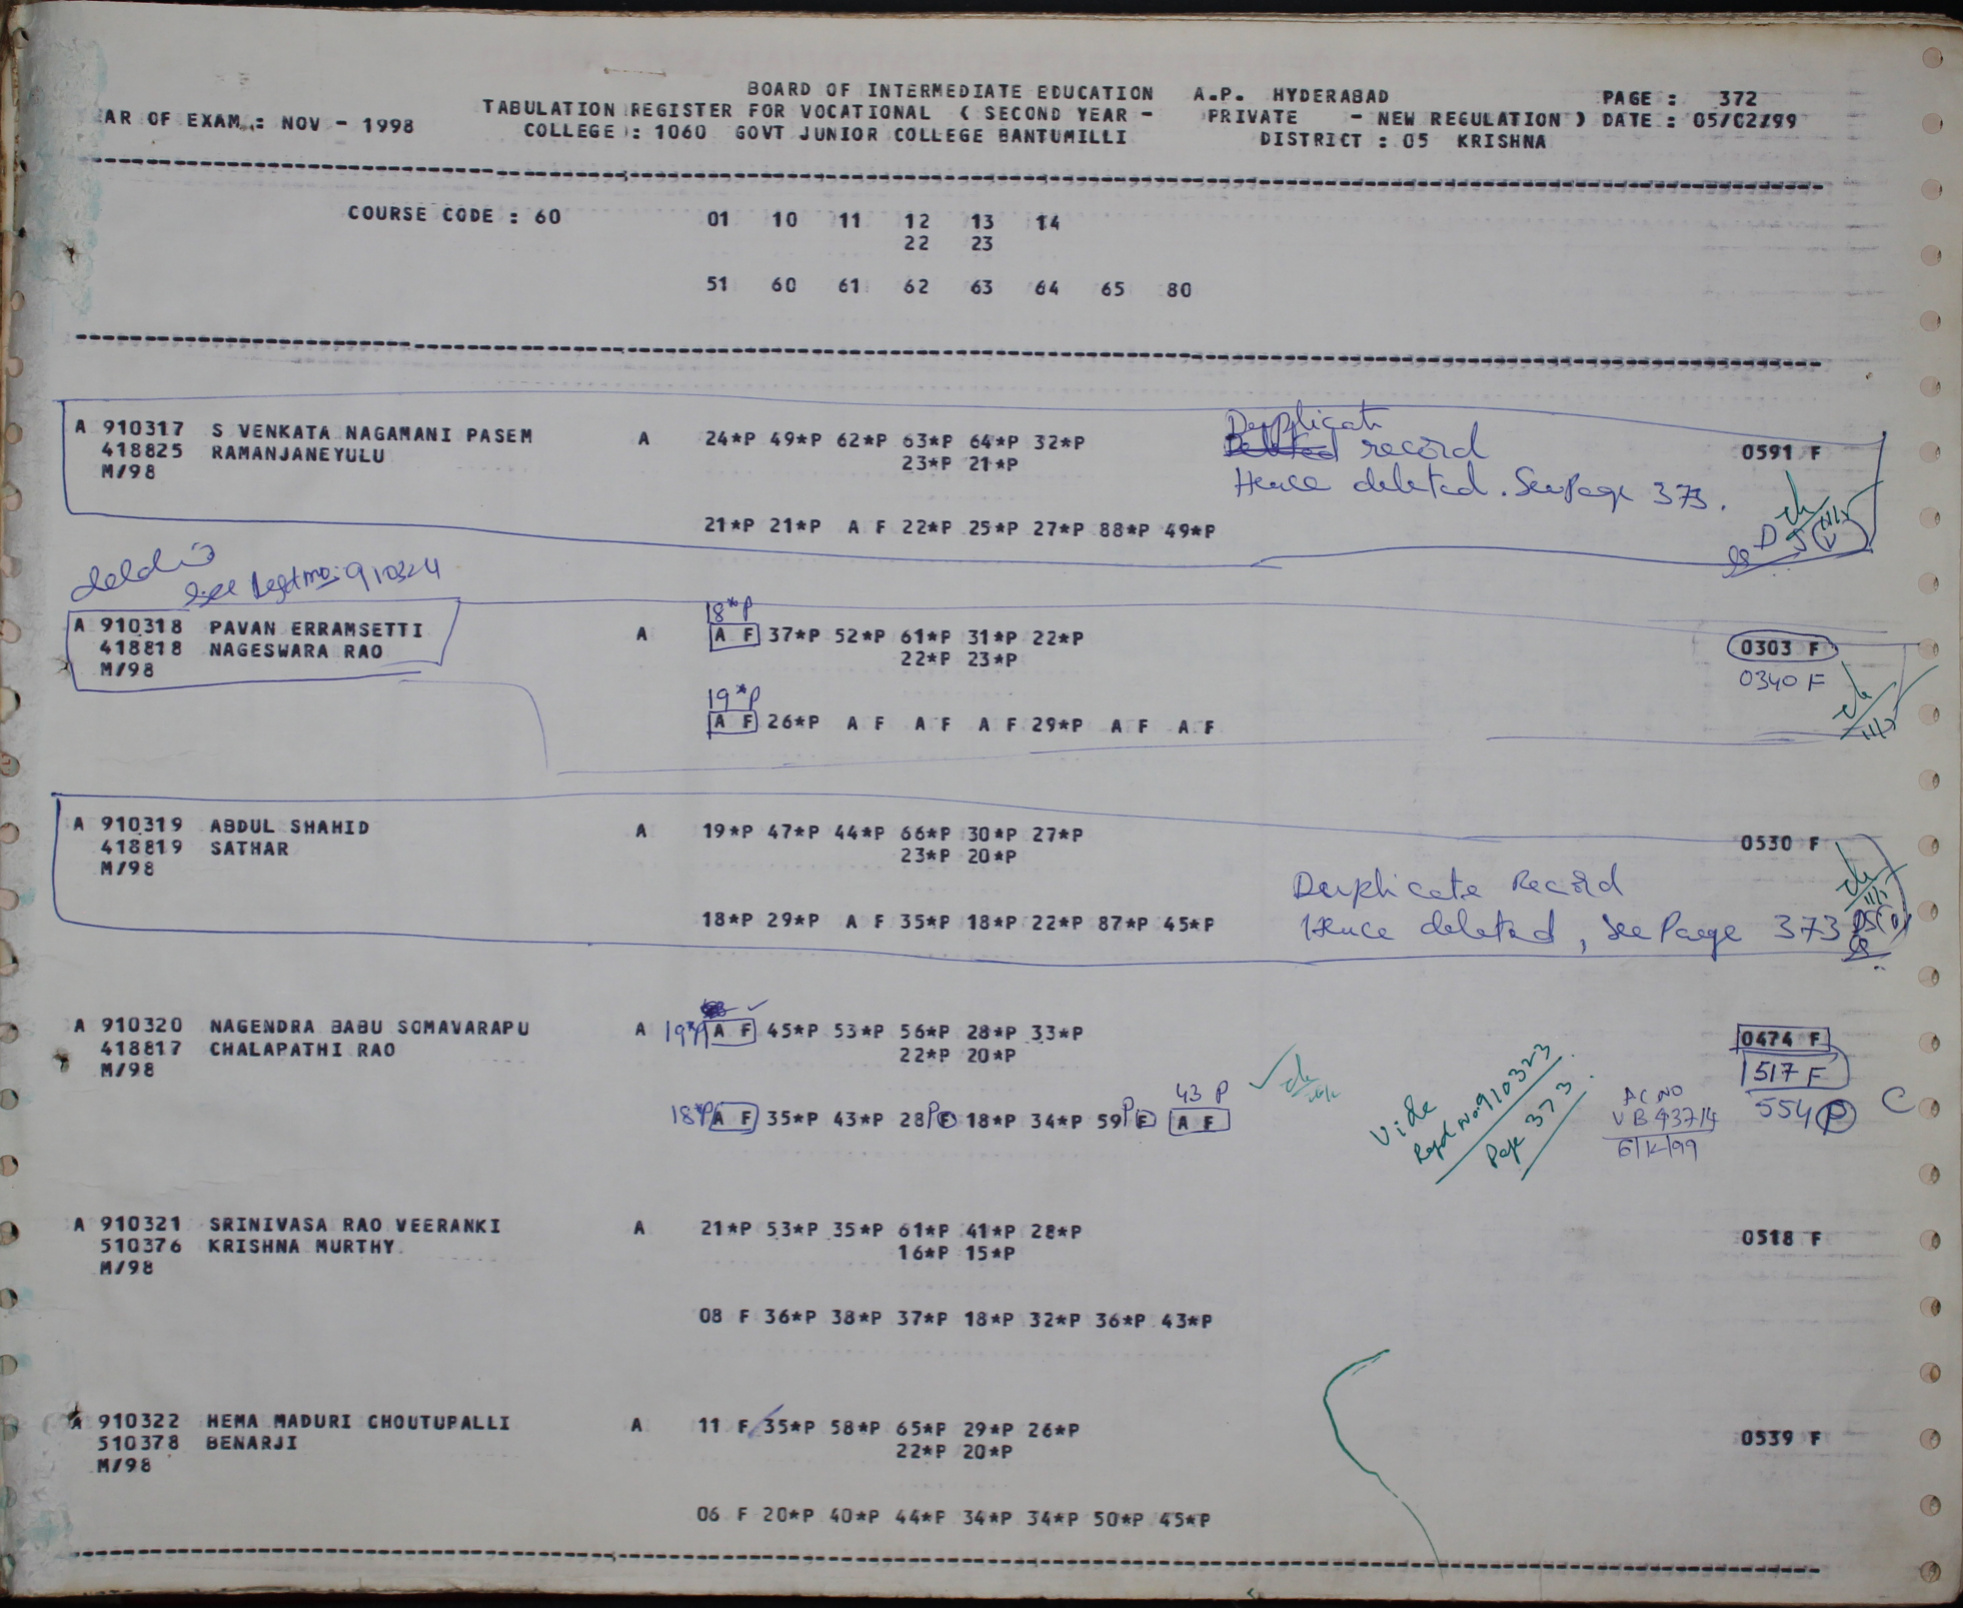 BOARD OF INTERMEDIATE EDUCATION A.P. HYDERABAD PAGE : 372
AR OF EXAM.: NOV - 1998 TABULATION REGISTER FOR VOCATIONAL ( SECOND YEAR - PRIVATE - NEW REGULATION ) DATE : 05/02/99
COLLEGE : 1060 GOVT JUNIOR COLLEGE BANTUMILLI DISTRICT : 05 KRISHNA
COURSE CODE : 60 01 10 11 12 13 14
22 23
51 60 61 62 63 64 65 80
Duplicate
A 910317 S VENKATA NAGAMANI PASEM A 24*P 49*P 62*P 63*P 64*P 32*P record 0591 F
418825 RAMANJANEYULU 23*P 21*P
M/98 Hence deleted. See Page 373.
21*P 21*P A F 22*P 25*P 27*P 88*P 49*P
See Regd no: 910324
18*P
A 910318 PAVAN ERRAMSETTI A A F 37*P 52*P 61*P 31*P 22*P 0303 F
418818 NAGESWARA RAO 22*P 23*P 0340 F
M/98
19*P
A F 26*P A F A F A F 29*P A F A F
A 910319 ABDUL SHAHID A 19*P 47*P 44*P 66*P 30*P 27*P 0530 F
418819 SATHAR 23*P 20*P
M/98 Duplicate Record
18*P 29*P A F 35*P 18*P 22*P 87*P 45*P Hence deleted, See Page 373
A 910320 NAGENDRA BABU SOMAVARAPU A 19*P A F 45*P 53*P 56*P 28*P 33*P 0474 F
418817 CHALAPATHI RAO 22*P 20*P 517 F
M/98
43 P
18*P A F 35*P 43*P 28 P F 18*P 34*P 59 P F A F 554 P C
Vide
Regd No: 910323
Page 373
A 910321 SRINIVASA RAO VEERANKI A 21*P 53*P 35*P 61*P 41*P 28*P 0518 F
510376 KRISHNA MURTHY 16*P 15*P
M/98
08 F 36*P 38*P 37*P 18*P 32*P 36*P 43*P
A 910322 HEMA MADURI CHOUTUPALLI A 11 F 35*P 58*P 65*P 29*P 26*P 0539 F
510378 BENARJI 22*P 20*P
M/98
06 F 20*P 40*P 44*P 34*P 34*P 50*P 45*P